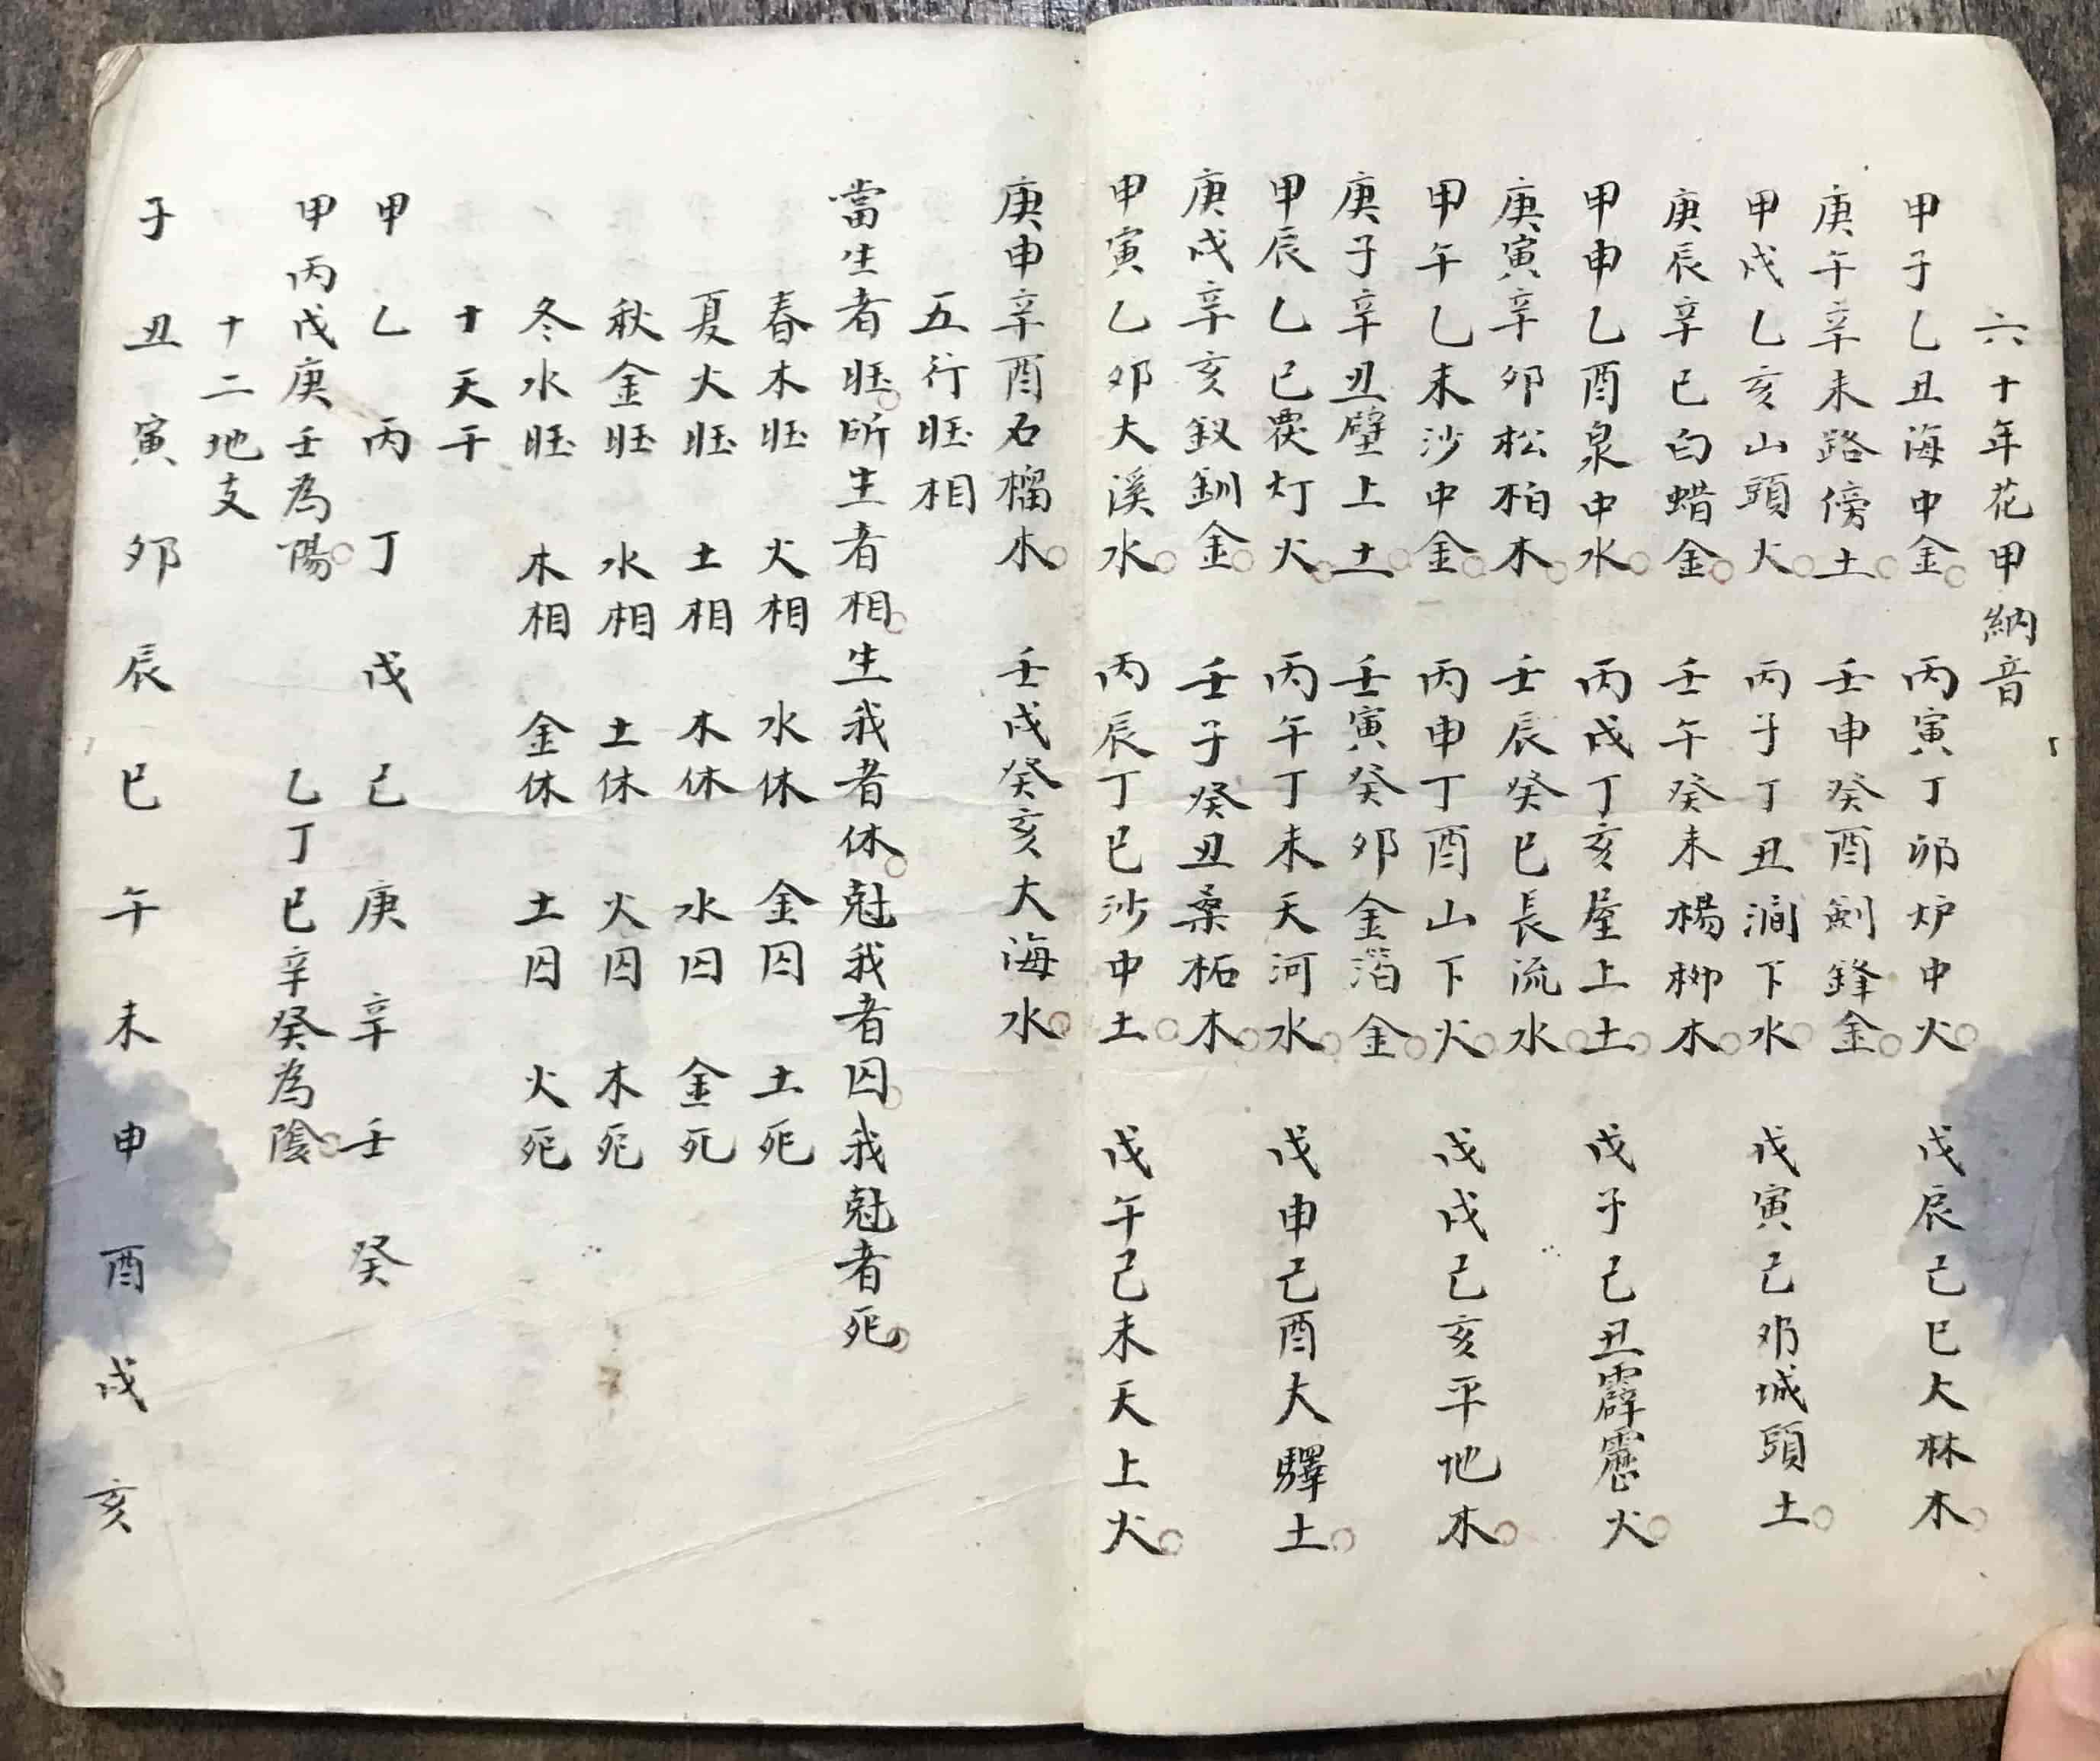 六十年花甲納音
甲子乙丑海中金 丙寅丁卯炉中火 戊辰己巳大林木
庚午辛未路傍土 壬申癸酉劍鋒金
甲戌乙亥山頭火 丙子丁丑澗下水 戊寅己卯城頭土
庚辰辛巳白蜡金 壬午癸未楊柳木
甲申乙酉泉中水 丙戌丁亥屋上土 戊子己丑霹靂火
庚寅辛卯松柏木 壬辰癸巳長流水
甲午乙未沙中金 丙申丁酉山下火 戊戌己亥平地木
庚子辛丑壁上土 壬寅癸卯金箔金
甲辰乙巳覆灯火 丙午丁未天河水 戊申己酉大驛土
庚戌辛亥釵釧金 壬子癸丑桑柘木
甲寅乙卯大溪水 丙辰丁巳沙中土 戊午己未天上火
庚申辛酉石榴木 壬戌癸亥大海水
五行旺相
當生者旺所生者相生我者休尅我者囚我尅者死
春木旺 火相 水休 金囚 土死
夏火旺 土相 木休 水囚 金死
秋金旺 水相 土休 火囚 木死
冬水旺 木相 金休 土囚 火死
十天干
甲乙丙丁戊己庚辛壬癸
甲丙戊庚壬為陽 乙丁巳辛癸為陰
十二地支
子丑寅卯辰巳午未申酉戌亥